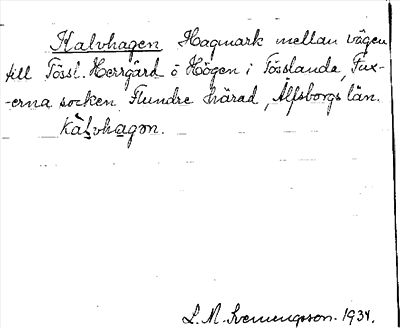 Kalvhagen Hagmark mellan vägen
till Tössl. Herrgård o Högen i Tösslanda, Fux-
-erna socken Flundre härad, Älfsborgs län.
kàl̥vhagən.
L. M. Svenungsson. 1934.